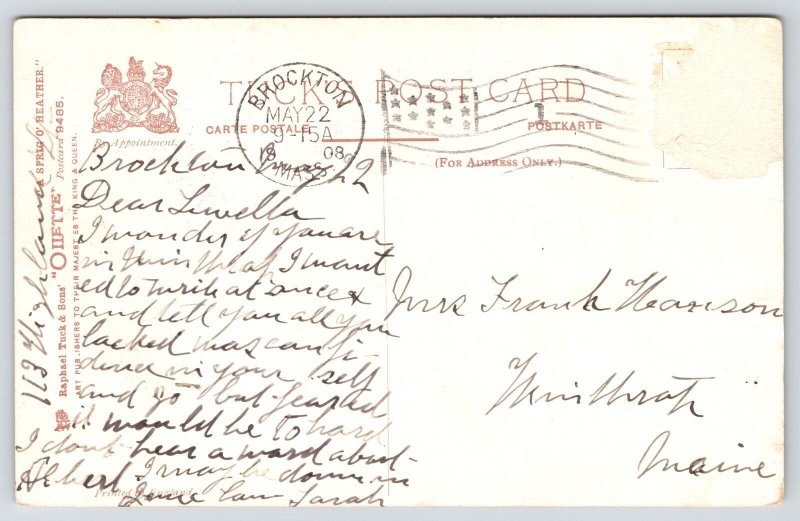 TUCK'S POST CARD
CARTE POSTALE
POSTKARTE
(FOR ADDRESS ONLY.)
By Appointment.
BROCKTON
MAY 22
-15A
1908
MASS.
1
"A SPRIG O' HEATHER."
Postcard 9485.
Raphael Tuck & Sons' "OILETTE"
ART PUBLISHERS TO THEIR MAJESTIES THE KING & QUEEN.
113 Highland
Brockton May 22
Dear Luella
I wonder if you are
in Winthrop I want
ed to write at once &
and tell you all you
lacked was confi-
dence in your self
and go but feared
it would be to hard
I dont hear a word about
Albert. I may be down in
June Cam Sarah
Printed in England.
Mrs Frank Harrison
Winthrop
Maine